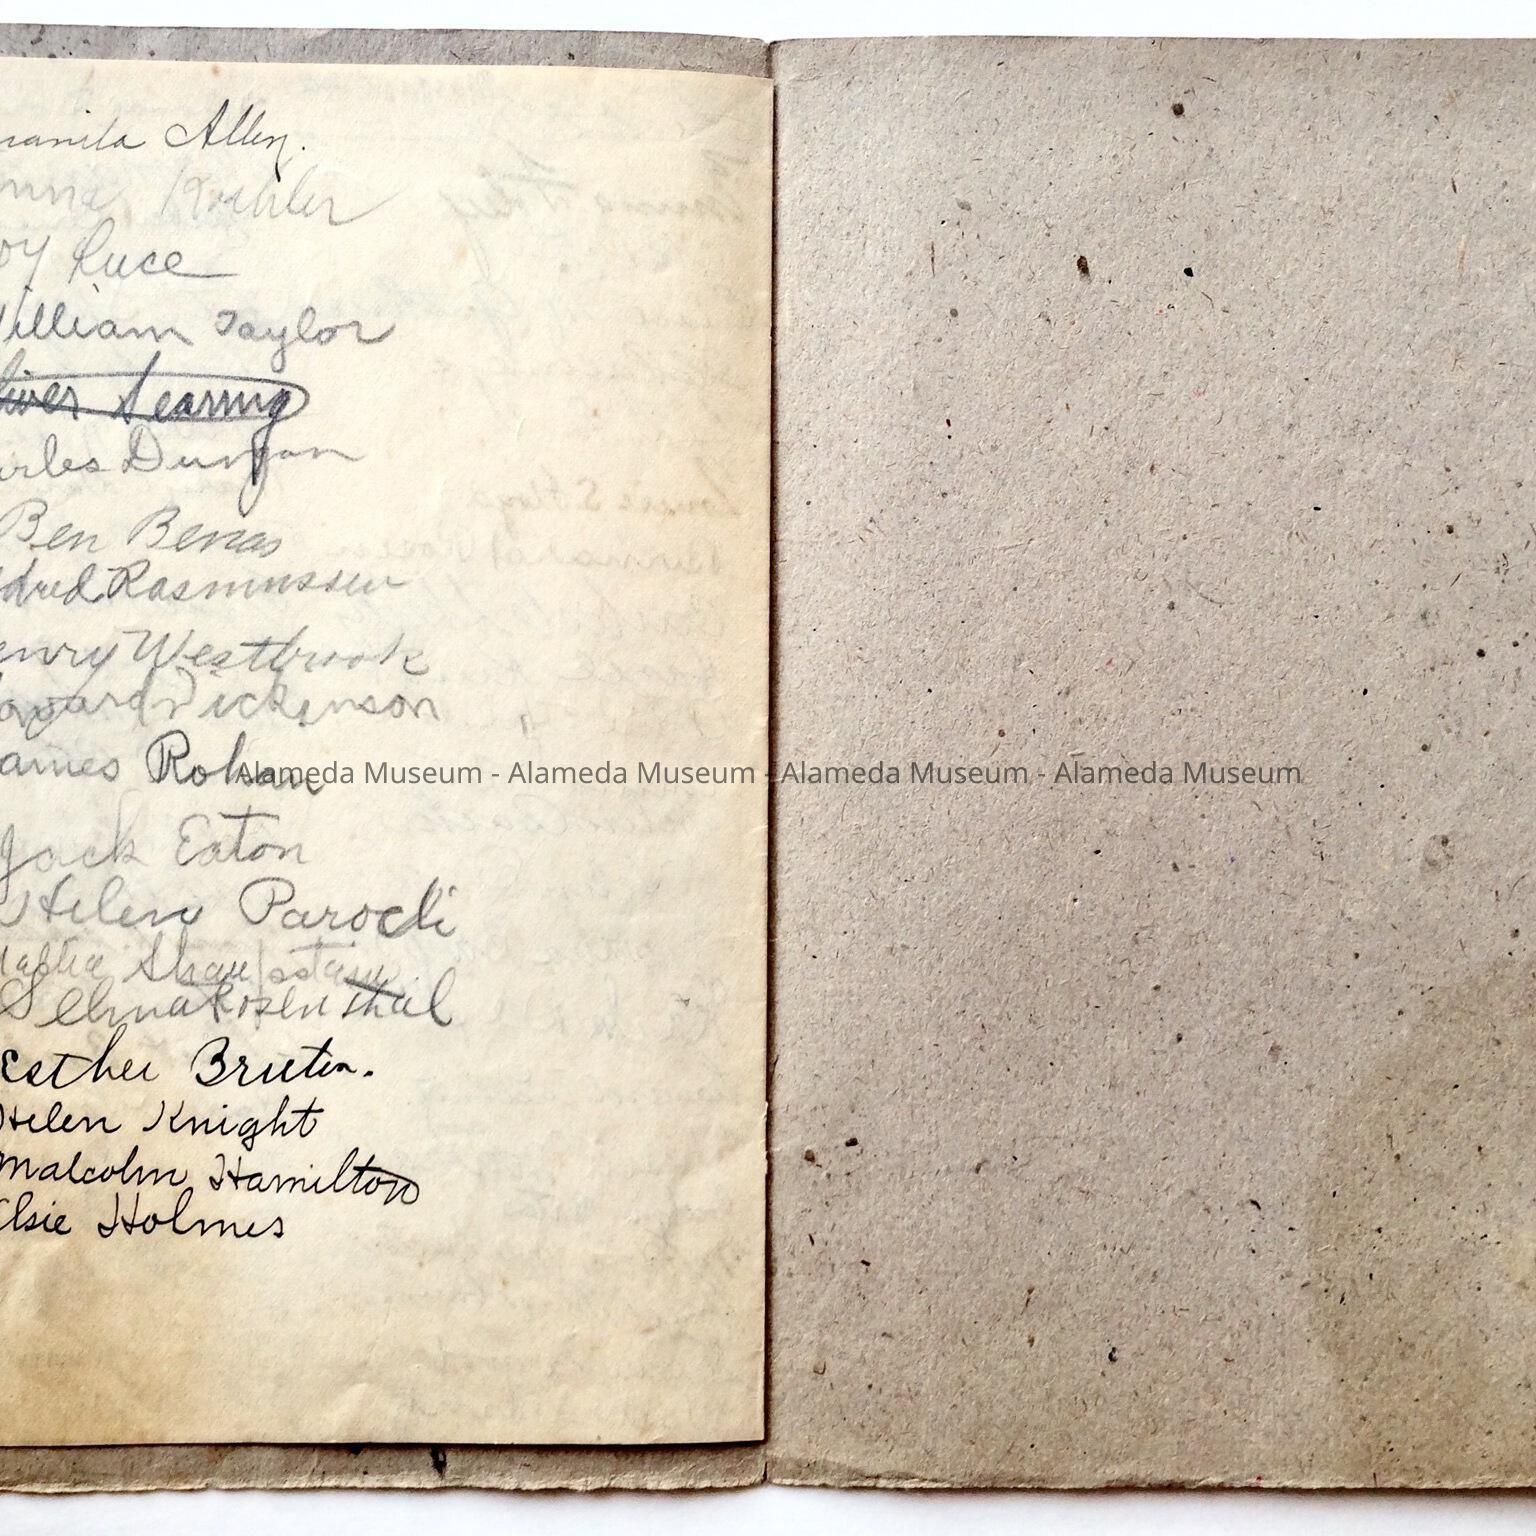 uanita Allen.
Koehler
oy Ruce
illiam Taylor
liver Searing
arles Dungan
Ben Benas
ldred Rasmussen
enry Westbrook
Dickenson
ames Rohan
Jack Eaton
Helen Parodi
Selma Rosenthal
Esther Bruton.
Helen Knight
Malcolm Hamilton
Elsie Holmes
Alameda Museum - Alameda Museum - Alameda Museum - Alameda Museum